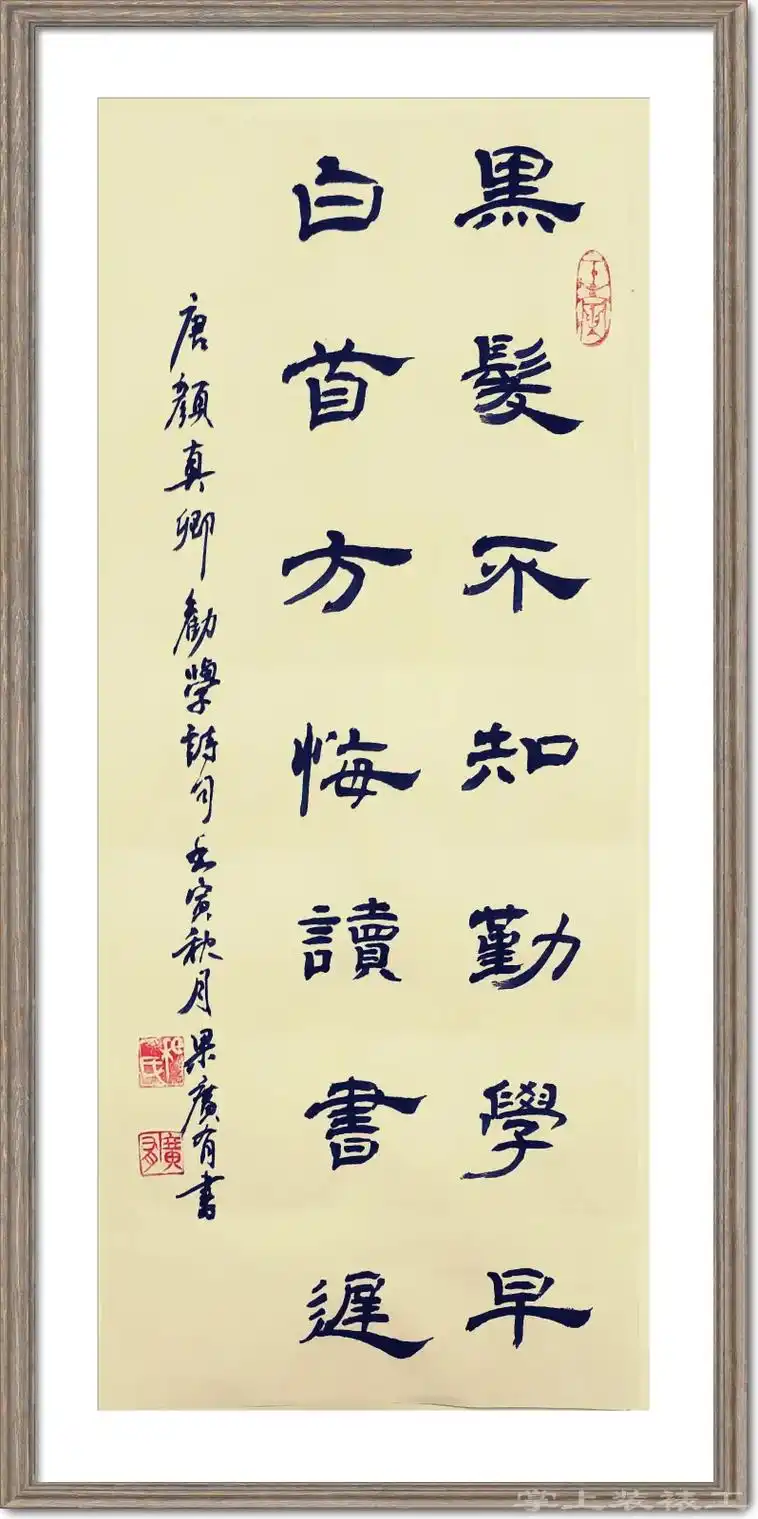 黑髮不知勤學早
白首方悔讀書遲
唐顏真卿勸學詩句壬寅秋月果廣有書
廣有
掌上装裱工